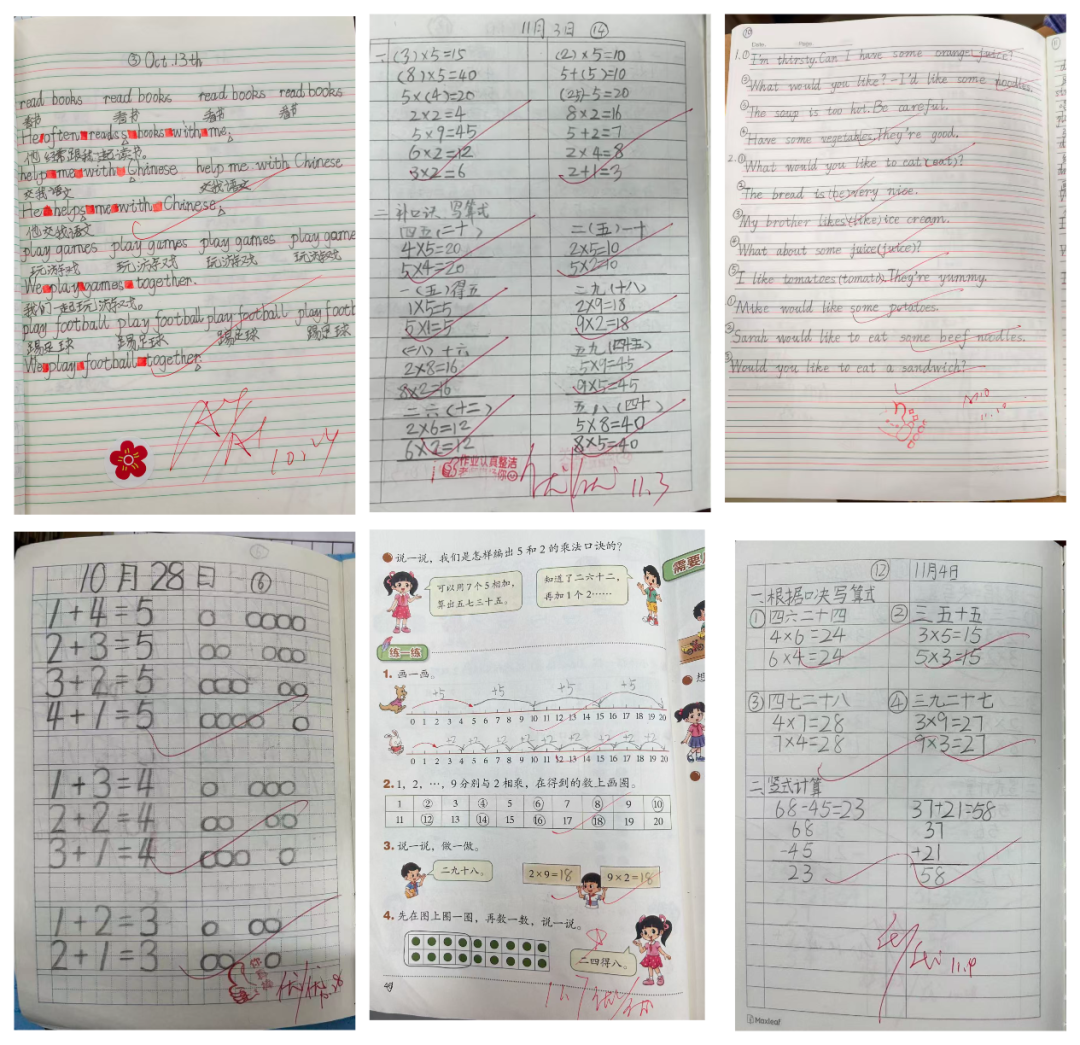 ③ Oct. 13th
read books read books read books read books
看书 看书 看书 看书
He often reads books with me.
他经常跟我一起读书。
help me with Chinese help me with Chinese
交我语文 交我语文
He helps me with Chinese.
他交我语文
play games play games play games play game
玩游戏 玩游戏 玩游戏 玩游戏
We play games together.
我们一起玩游戏。
play football play football play football play footb
踢足球 踢足球 踢足球 踢足球
We play football together.
A+
11月3日 ⑭
一 (3)×5=15 (2)×5=10
(8)×5=40 5+(5)=10
5×(4)=20 (25)-5=20
2×2=4 8×2=16
5×9=45 5+2=7
6×2=12 2×4=8
3×2=6 2+1=3
二 补口决 写算式
四五(二十) 二(五)一十
4×5=20 2×5=10
5×4=20 5×2=10
一(五)得五 二九(十八)
1×5=5 2×9=18
5×1=5 9×2=18
(二八)十六 五九(四十五)
2×8=16 5×9=45
8×2=16 9×5=45
二六(十二) 五八(四十)
2×6=12 5×8=40
6×2=12 8×5=40
作业认真整洁
11.3
⑩
1.① I'm thirsty. Can I have some orange juice?
② What would you like? - I'd like some noodles.
③ The soup is too hot. Be careful.
④ Have some vegetables. They're good.
2.① What would you like to eat(eat)?
② The bread is(be) very nice.
③ My brother likes(like) ice cream.
④ What about some juice(juice)?
⑤ I like tomatoes(tomato). They're yummy.
① Mike would like some potatoes.
② Sarah would like to eat some beef noodles.
③ Would you like to eat a sandwich?
10月28日 ⑥
1+4=5
2+3=5
3+2=5
4+1=5
1+3=4
2+2=4
3+1=4
1+2=3
2+1=3
说一说，我们是怎样编出 5 和 2 的乘法口诀的？
可以用7个5相加，
算出五七三十五。
知道了二六十二，
再加1个2……
需要
练一练
1. 画一画。
+5 +5 +5 +5
0 1 2 3 4 5 6 7 8 9 10 11 12 13 14 15 16 17 18 19 20
+2 +2 +2 +2 +2 +2 +2 +2 +2
0 1 2 3 4 5 6 7 8 9 10 11 12 13 14 15 16 17 18 19 20
2. 1，2，…，9 分别与 2 相乘，在得到的数上画图。
1 2 3 4 5 6 7 8 9 10
11 12 13 14 15 16 17 18 19 20
3. 说一说，做一做。
二九十八。
2×9=18 9×2=18
4. 先在图上圈一圈，再数一数，说一说。
二四得八。
想
⑫ 11月4日
一.根据口决写算式
① 四六二十四 ② 三五十五
4×6=24 3×5=15
6×4=24 5×3=15
③ 四七二十八 ④ 三九二十七
4×7=28 3×9=27
7×4=28 9×3=27
二.竖式计算
68-45=23 37+21=58
68 37
-45 +21
23 58
Maxleaf